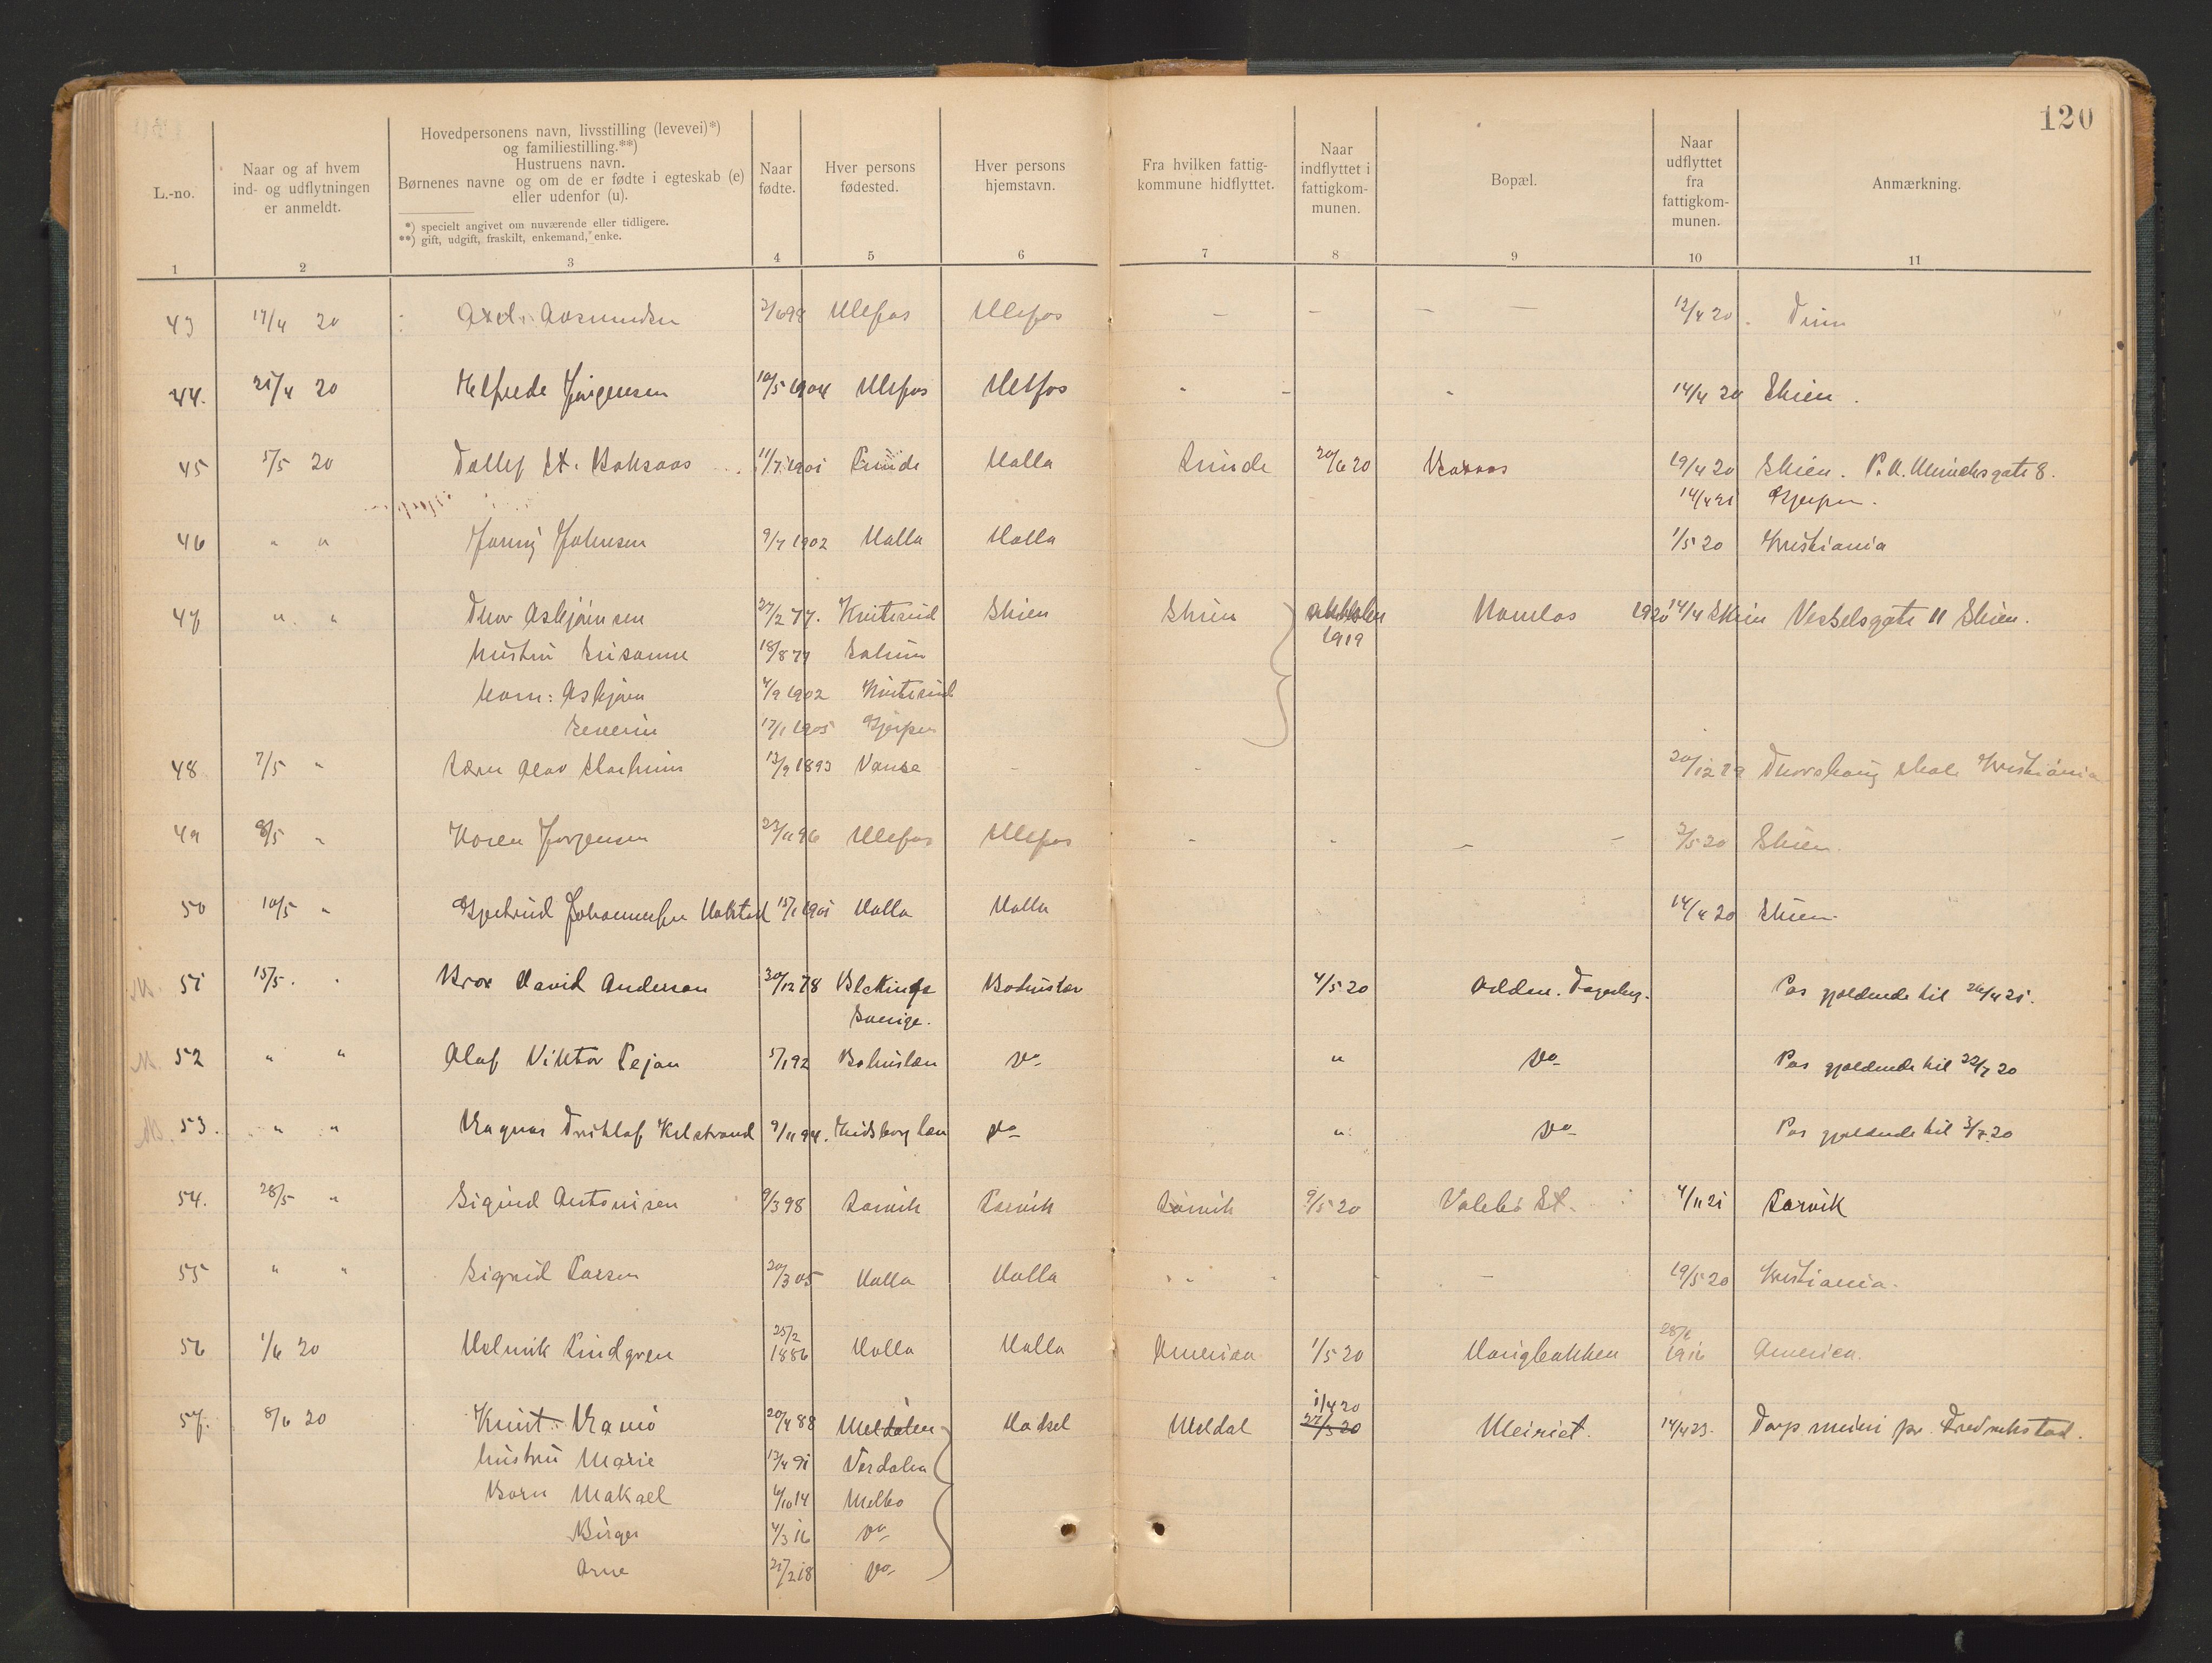 120
L.-no.
Naar og af hvem ind- og udflytningen er anmeldt.
Hovedpersonens navn, livsstilling (levevei)*) og familiestilling.**)
Hustruens navn.
Børnenes navne og om de er fødte i egteskab (e) eller udenfor (u).
*) specielt angivet om nuværende eller tidligere.
**) gift, udgift, fraskilt, enkemand, enke.
Naar fødte.
Hver persons fødested.
Hver persons hjemstavn.
Fra hvilken fattigkommune hidflyttet.
Naar indflyttet i fattigkommunen.
Bopæl.
Naar udflyttet fra fattigkommunen.
Anmærkning.
1 2 3 4 5 6 7 8 9 10 11
43 17/4 20 Axel Aasmundsen 2/6 98 Ulefos Ulefos - - - - 12/4 20
44. 21/4 20 Helfrede Jørgensen 10/5 1904 Ulefos Ulefos - - - 14/4 20 Skien.
45 5/5 20 11/7 1901 Lunde Holla Lunde 19/4 20 Skien. P. A. Munchsgate 8.
14/4 21 Gjerpen.
46 " " Jenny Johnsen 9/7 1902 Holla Holla 1/5 20 Kristiania
47 " " Thor Asbjørnsen 27/2 77. Kviteseid Skien Skien 1919 Namlos 1920 14/4 Skien Vesselsgate 11 Skien.
hustru Susanne 18/8 77 Solum
barn: Asbjørn 4/9 1902 Kviteseid
Severin 17/1 1905 Gjerpen
48 7/5 " 13/9 1893 Vanse - - 20/12 19 Thorshaug skole Kristiania
49 8/5 " Karen Jørgensen 22/11 96 Ulefos Ulefos - - - - 2/5 20 Skien.
50 10/5 " Gjertrud Johannessen 15/1 1901 Holla Holla 14/4 20 Skien.
51 15/5 . " Bror David Anderson 30/12 78 Blekinge Bohuslæn 4/5 20 Pas gjældende til 26/4 21.
Sverige.
52 " " Olaf Viktor Pejan 5/1 92 Bohuslen Do " Do Pas gjældende til 22/7 20
53. " " Ragnar 9/11 94. Do " Do Pas gjældende til 3/7 20
54. 28/5 " Sigurd Antonisen 9/3 98 Larvik Larvik Larvik 9/5 20 Valebø St. 4/11 21 Larvik
55 " " Sigrid Larsen 20/3 05 Holla Holla - - - - 19/5 20 Kristiania.
56 1/6 20 Lindgren 25/2 1886 Holla Holla America 1/5 20 Haugbakken 28/6 1916 America.
57. 8/6 20 Knut Ramø 20/4 88 Meldalen Hadsel Meldal 1/4 20 27/3 20 Meieriet. 14/4 23. Torp meieri pr. Fredrikstad.
hustru Marie 13/4 91 Verdalen
Børn Makael 6/10 14 Melbo
Birger 4/3 16 Do
Arne 27/2 18 Do